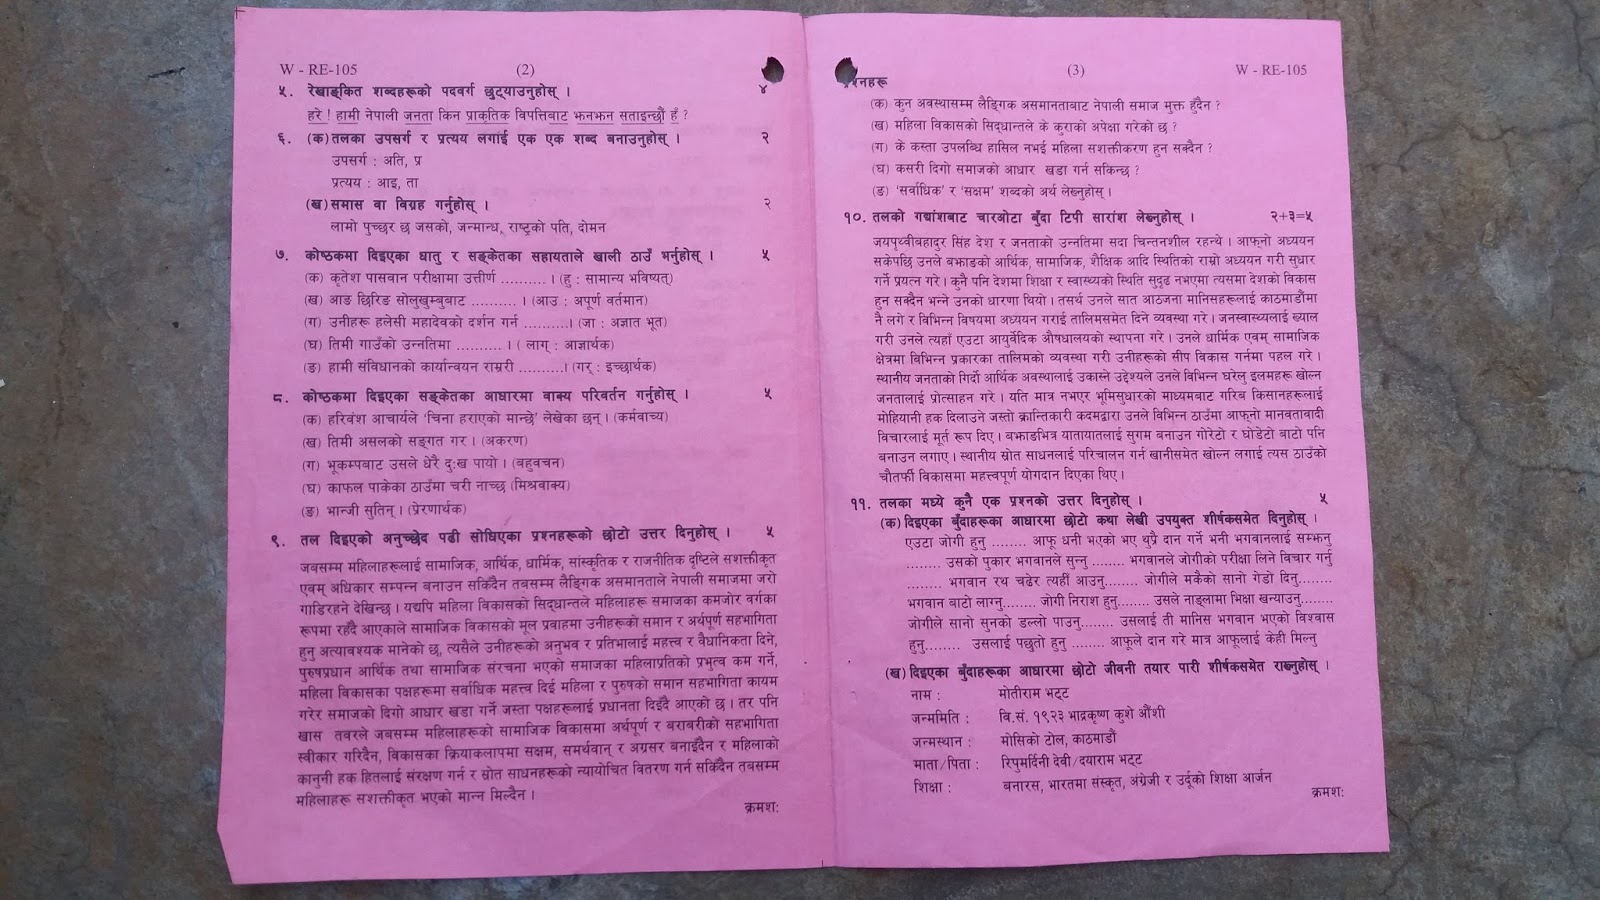 W - RE-105 (2)
५. रेखाङ्कित शब्दहरूको पदवर्ग छुट्याउनुहोस् । ४
हरे ! हामी नेपाली जनता किन प्राकृतिक विपत्तिबाट झनझन सताइन्छौँ हँ ?
६. (क) तलका उपसर्ग र प्रत्यय लगाई एक एक शब्द बनाउनुहोस् । २
उपसर्ग : अति, प्र
प्रत्यय : आइ, ता
(ख) समास वा विग्रह गर्नुहोस् । २
लामो पुच्छर छ जसको, जन्मान्ध, राष्ट्रको पति, दोमन
७. कोष्ठकमा दिइएका धातु र सङ्केतका सहायताले खाली ठाउँ भर्नुहोस् । ५
(क) कृतेश पासवान परीक्षामा उत्तीर्ण ..........। (हु : सामान्य भविष्यत्)
(ख) आङ छिरिङ सोलुखुम्बुबाट ..........। (आउ : अपूर्ण वर्तमान)
(ग) उनीहरू हलेसी महादेवको दर्शन गर्न ..........। (जा : अज्ञात भूत)
(घ) तिमी गाउँको उन्नतिमा ..........। ( लाग् : आज्ञार्थक)
(ङ) हामी संविधानको कार्यान्वयन राम्ररी ..........। (गर् : इच्छार्थक)
८. कोष्ठकमा दिइएका सङ्केतका आधारमा वाक्य परिवर्तन गर्नुहोस् । ५
(क) हरिवंश आचार्यले ‘चिना हराएको मान्छे’ लेखेका छन् । (कर्मवाच्य)
(ख) तिमी असलको सङ्गत गर । (अकरण)
(ग) भूकम्पबाट उसले धेरै दुःख पायो । (बहुवचन)
(घ) काफल पाकेका ठाउँमा चरी नाच्छ (मिश्रवाक्य)
(ङ) भान्जी सुतिन् । (प्रेरणार्थक)
९. तल दिइएको अनुच्छेद पढी सोधिएका प्रश्नहरूको छोटो उत्तर दिनुहोस् । ५
जबसम्म महिलाहरूलाई सामाजिक, आर्थिक, धार्मिक, सांस्कृतिक र राजनीतिक दृष्टिले सशक्तीकृत
एवम् अधिकार सम्पन्न बनाउन सकिँदैन तबसम्म लैङ्गिक असमानताले नेपाली समाजमा जरो
गाडिरहने देखिन्छ । यद्यपि महिला विकासको सिद्धान्तले महिलाहरू समाजका कमजोर वर्गका
रूपमा रहँदै आएकाले सामाजिक विकासको मूल प्रवाहमा उनीहरूको समान र अर्थपूर्ण सहभागिता
हुनु अत्यावश्यक मानेको छ, त्यसैले उनीहरूको अनुभव र प्रतिभालाई महत्त्व र वैधानिकता दिने,
पुरुषप्रधान आर्थिक तथा सामाजिक संरचना भएको समाजका महिलाप्रतिको प्रभुत्व कम गर्ने,
महिला विकासका पक्षहरूमा सर्वाधिक महत्त्व दिई महिला र पुरुषको समान सहभागिता कायम
गरेर समाजको दिगो आधार खडा गर्ने जस्ता पक्षहरूलाई प्रधानता दिइँदै आएको छ । तर पनि
खास तवरले जबसम्म महिलाहरूको सामाजिक विकासमा अर्थपूर्ण र बराबरीको सहभागिता
स्वीकार गरिदैन, विकासका क्रियाकलापमा सक्षम, समर्थवान् र अग्रसर बनाइँदैन र महिलाको
कानुनी हक हितलाई संरक्षण गर्न र स्रोत साधनहरूको न्यायोचित वितरण गर्न सकिँदैन तबसम्म
महिलाहरू सशक्तीकृत भएको मान्न मिल्दैन ।
क्रमशः
(3) W - RE-105
प्रश्नहरू
(क) कुन अवस्थासम्म लैङ्गिक असमानताबाट नेपाली समाज मुक्त हुँदैन ?
(ख) महिला विकासको सिद्धान्तले के कुराको अपेक्षा गरेको छ ?
(ग) के कस्ता उपलब्धि हासिल नभई महिला सशक्तीकरण हुन सक्दैन ?
(घ) कसरी दिगो समाजको आधार खडा गर्न सकिन्छ ?
(ङ) ‘सर्वाधिक’ र ‘सक्षम’ शब्दको अर्थ लेख्नुहोस् ।
१०. तलको गद्यांशबाट चारओटा बुँदा टिपी सारांश लेख्नुहोस् । २+३=५
जयपृथ्वीबहादुर सिंह देश र जनताको उन्नतिमा सदा चिन्तनशील रहन्थे । आफ्नो अध्ययन
सकेपछि उनले बझाङको आर्थिक, सामाजिक, शैक्षिक आदि स्थितिको राम्रो अध्ययन गरी सुधार
गर्ने प्रयत्न गरे । कुनै पनि देशमा शिक्षा र स्वास्थ्यको स्थिति सुदृढ नभएमा त्यसमा देशको विकास
हुन सक्दैन भन्ने उनको धारणा थियो । तसर्थ उनले सात आठजना मानिसहरूलाई काठमाडौँमा
नै लगे र विभिन्न विषयमा अध्ययन गराई तालिमसमेत दिने व्यवस्था गरे । जनस्वास्थ्यलाई ख्याल
गरी उनले त्यहाँ एउटा आयुर्वेदिक औषधालयको स्थापना गरे । उनले धार्मिक एवम् सामाजिक
क्षेत्रमा विभिन्न प्रकारका तालिमको व्यवस्था गरी उनीहरूको सीप विकास गर्नमा पहल गरे ।
स्थानीय जनताको गिर्दो आर्थिक अवस्थालाई उकास्ने उद्देश्यले उनले विभिन्न घरेलु इलमहरू खोल्न
जनतालाई प्रोत्साहन गरे । यति मात्र नभएर भूमिसुधारको माध्यमबाट गरिब किसानहरूलाई
मोहियानी हक दिलाउने जस्तो क्रान्तिकारी कदमद्वारा उनले विभिन्न ठाउँमा आफ्नो मानवतावादी
विचारलाई मूर्त रूप दिए । बझाङभित्र यातायातलाई सुगम बनाउन गोरेटो र घोडेटो बाटो पनि
बनाउन लगाए । स्थानीय स्रोत साधनलाई परिचालन गर्न खानीसमेत खोल्न लगाई त्यस ठाउँको
चौतर्फी विकासमा महत्त्वपूर्ण योगदान दिएका थिए ।
११. तलका मध्ये कुनै एक प्रश्नको उत्तर दिनुहोस् । ५
(क) दिइएका बुँदाहरूका आधारमा छोटो कथा लेखी उपयुक्त शीर्षकसमेत दिनुहोस् ।
एउटा जोगी हुनु ........ आफू धनी भएको भए थुप्रै दान गर्ने भनी भगवानलाई सम्झनु
........ उसको पुकार भगवानले सुन्नु ........ भगवानले जोगीको परीक्षा लिने विचार गर्नु
........ भगवान रथ चढेर त्यहीँ आउनु........ जोगीले मकैको सानो गेडो दिनु........
भगवान बाटो लाग्नु........ जोगी निराश हुनु........ उसले नाङ्लामा भिक्षा खन्याउनु........
जोगीले सानो सुनको डल्लो पाउनु........ उसलाई ती मानिस भगवान भएको विश्वास
हुनु........ उसलाई पछुतो हुनु ........ आफूले दान गरे मात्र आफूलाई केही मिल्नु
(ख) दिइएका बुँदाहरूका आधारमा छोटो जीवनी तयार पारी शीर्षकसमेत राख्नुहोस् ।
नाम : मोतीराम भट्ट
जन्ममिति : वि.सं. १९२३ भाद्रकृष्ण कुशे औंशी
जन्मस्थान : मोसिको टोल, काठमाडौँ
माता/पिता : रिपुमर्दिनी देवी/दयाराम भट्ट
शिक्षा : बनारस, भारतमा संस्कृत, अंग्रेजी र उर्दूको शिक्षा आर्जन
क्रमशः